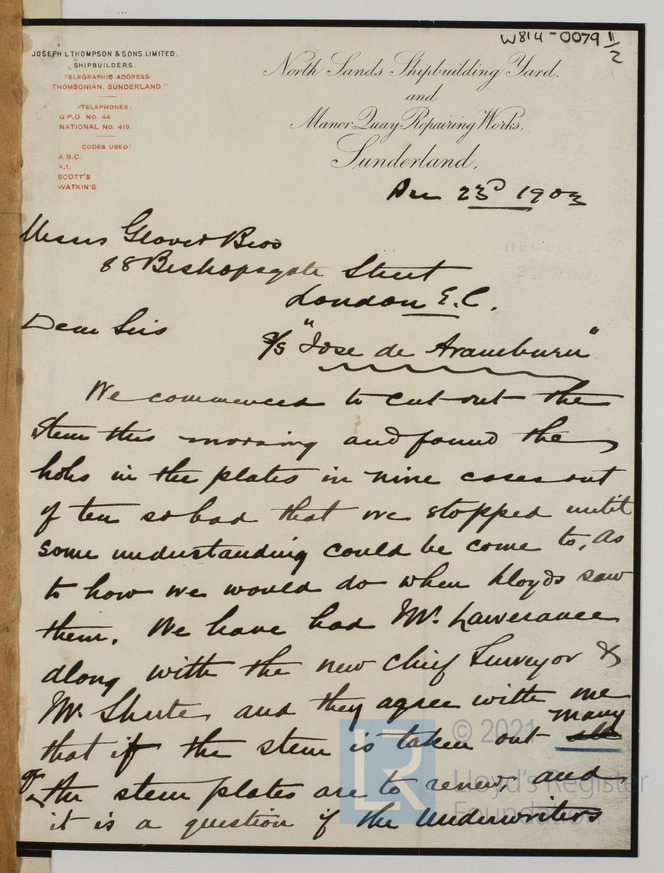 W814-0079 1/2
JOSEPH L. THOMPSON & SONS. LIMITED.
SHIPBUILDERS.
TELEGRAPHIC ADDRESS:
THOMSONIAN, SUNDERLAND."
TELEPHONES:
G.P.O No. 44
NATIONAL No. 419
CODES USED:
A.B.C.
A.I.
SCOTT'S
WATKIN'S
North Sands Shipbuilding Yard,
and
Manor Quay Repairing Works,
Sunderland,
Dec 23rd 1903
Messrs Glover Bros
88 Bishopsgate Street
London E.C.
Dear Sirs
S/S "Jose de Aramburu"
We commenced to cut out the
stem this morning and found the
holes in the plates in nine cases out
of ten so bad that we stopped until
some understanding could be come to, as
to how we would do when Lloyds saw
them. We have had Mr. Lawerance
along with the new Chief Surveyor &
Mr. Shute and they agree with me
that if the stem is taken out many
of the stem plates are to renew, and
it is a question if the Underwriters
© 2021
Lloyd's Register
Foundation
LR